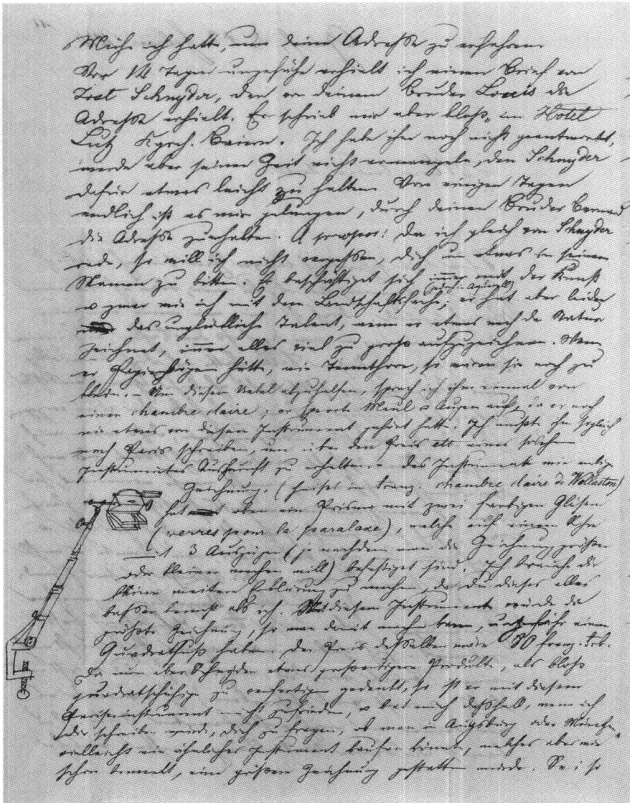 Mühe ich hatte, um deine Adresse zu erfahren.
Vor 14 Tagen ungefähr erhielt ich einen Brief von
Schnyder, den er deinen Bruder Louis die
Adresse erhielt. Er schrieb mir aber bloß, im Hotel
Ich habe ihm noch nicht geantwortet,
werde aber seiner Zeit nicht ermangeln, den Schnyder
dafür etwas zu halten. Vor einigen Tagen
endlich ist es mir gelungen, durch deinen Bruder
die Adresse zu erhalten. A propos! Da ich gleich von Schnyder
rede, so will ich nicht vergessen, dich um etwas in seinem
Namen zu bitten. Er beschäftiget sich mit der Kunst
wie ich mit dem Landschaftsfache, er hat aber leider
das unglückliche Talent, wenn er etwas nach der Natur
zeichnet, immer alles viel zu groß aufzuzeichnen. Wenn
er hätte, wie so wären sie noch zu
klein. Um diesem Uebel abzuhelfen, sprach ich ihm einmal von
einer chambre claire, er sperrte Maul u Augen auf, da er noch
nie etwas von diesem Instrument gehört hatte. Ich mußte ihm sogleich
nach Paris schreiben, um über den Preis eines solchen
Instrumentes Auskunft zu erhalten.
Zeichnung. (heißt in franz. chambre claire de Wollaston)
ein Prisma mit zwei farbigen Gläsern
(verres pour la paralaxe), welche auf einem
mit 3 Auszügen (je nachdem man die Zeichnung größer
oder kleiner machen will) befestiget sind. Ich brauche dir
keine weitere Erklärung zu machen, da du dieses alles
besser kennst als ich. Mit diesem Instrumente würde die
größte Zeichnung, so man damit machen kann, ungefähr einen
Quadratfuß haben. Der Preis desselben wäre 80 franz. frk.
Da nun etwas großartigere Produkte, als bloß
quadratschühige zu verfertigen gedenkt, so ist er mit diesem
nicht zufrieden, u bat mich deßhalb, wenn ich
dir schreiben würde, dich zu fragen, ob man in Augsburg oder München
vielleicht ein ähnliches Instrument kaufen könnte, welches aber wie
schon bemerkt, eine größere Zeichnung gestatten würde.